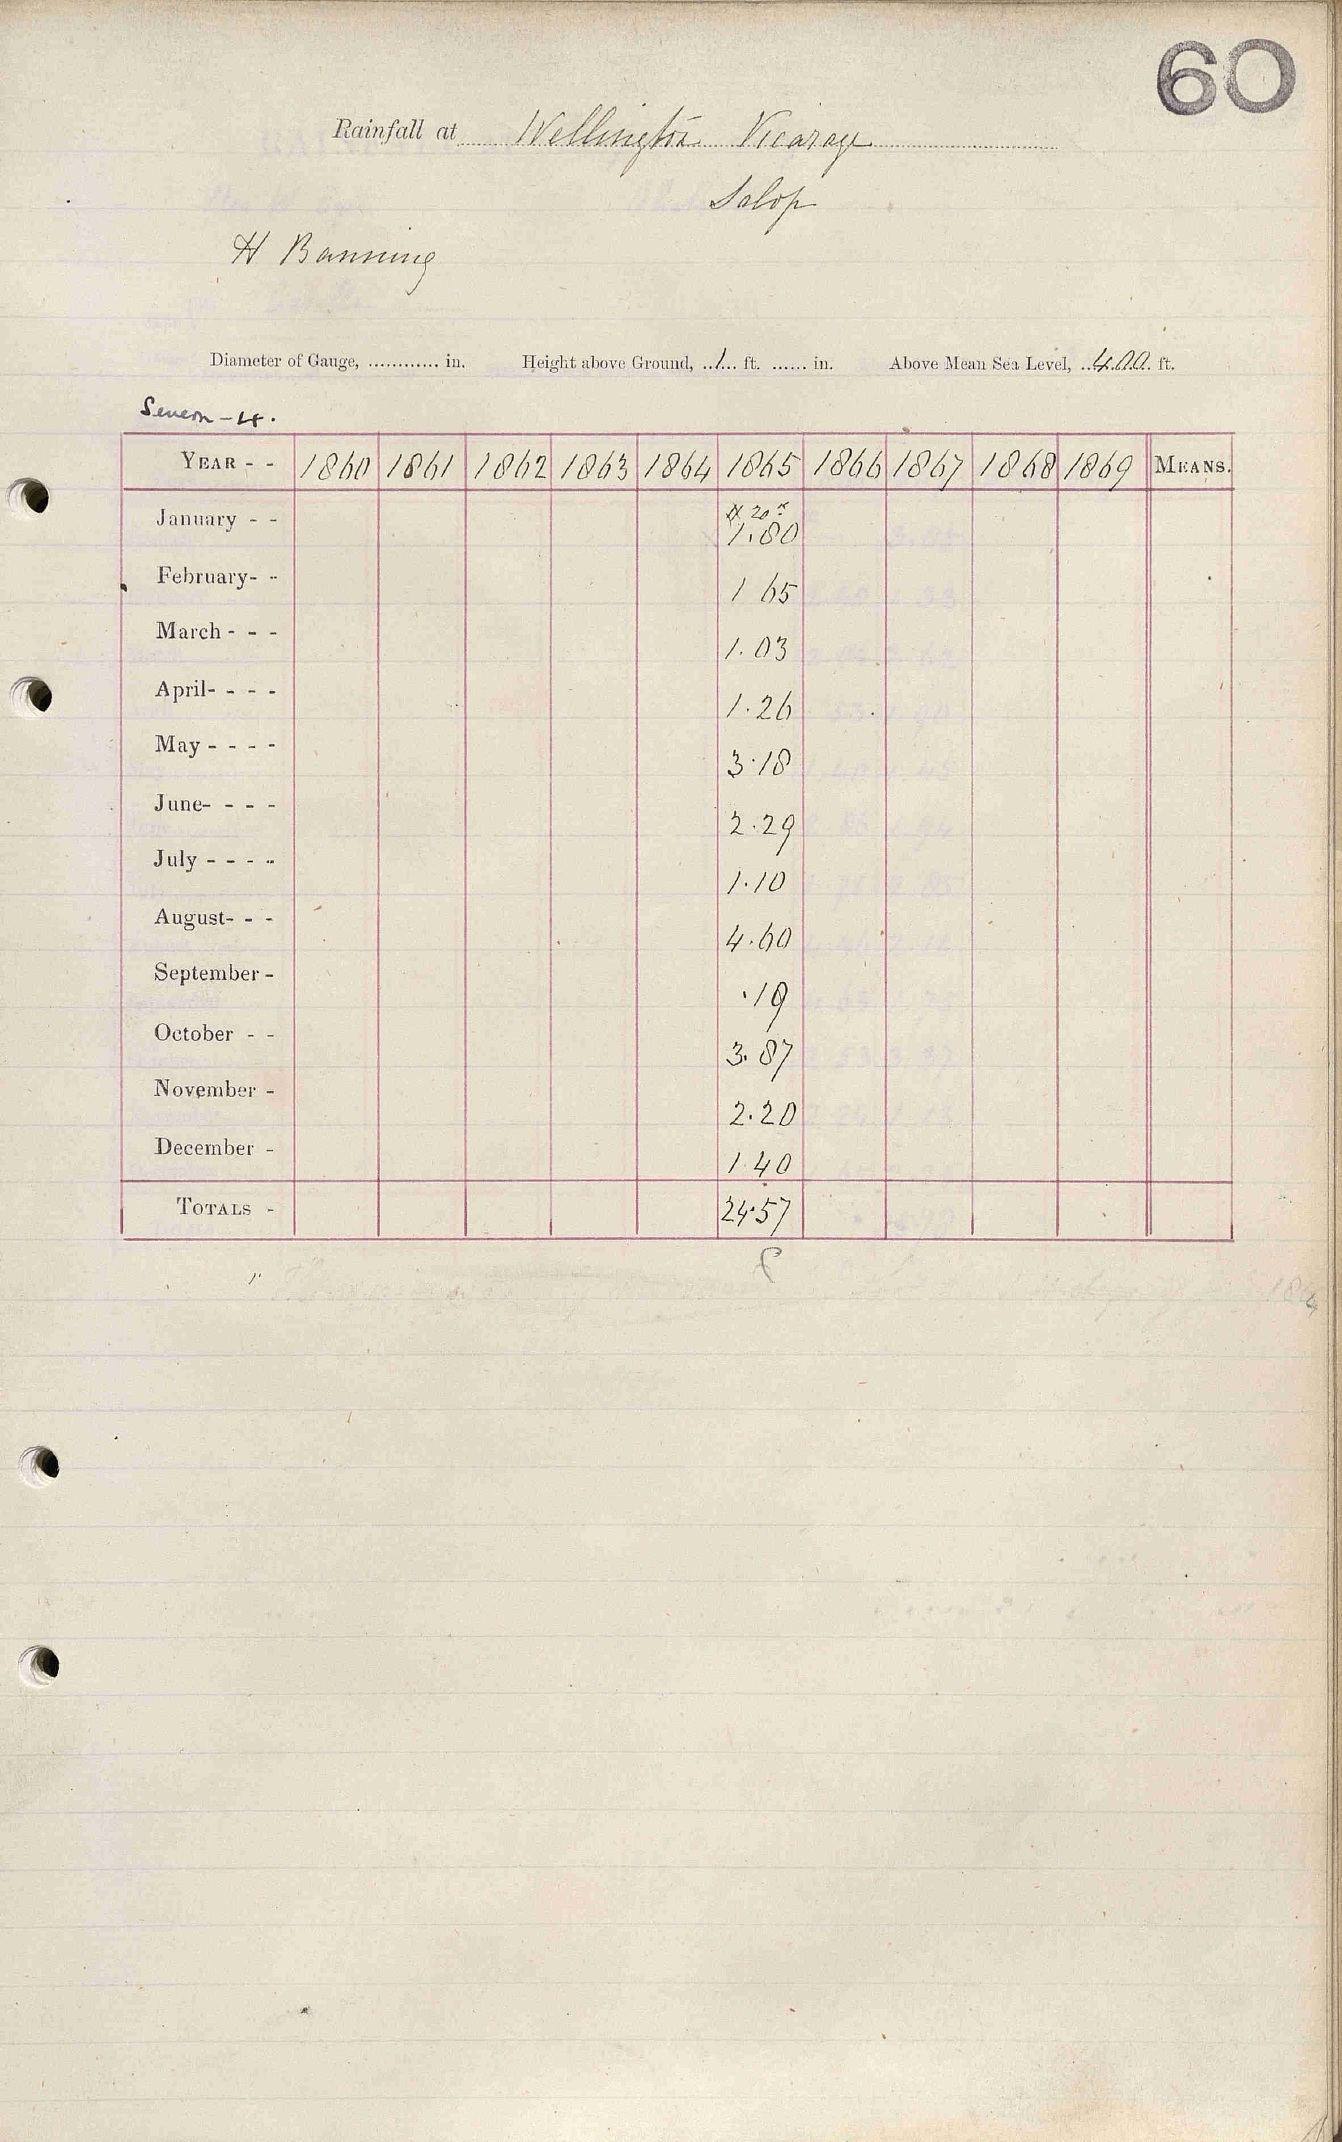 60
Rainfall at Wellington Vicarage
Salop
H Banning
Diameter of Gauge, ............ in. Height above Ground, ..1... ft. ...... in. Above Mean Sea Level, ..400. ft.
Severn - 4.
YEAR - - 1860 1861 1862 1863 1864 1865 1866 1867 1868 1869 MEANS.
January - - 1.80
February - - 1 65
March - - - 1.03
April - - - - 1.26
May - - - - 3.18
June - - - - 2.29
July - - - - 1.10
August - - - 4.60
September - .19
October - - 3.87
November - 2.20
December - 1.40
TOTALS - 24.57